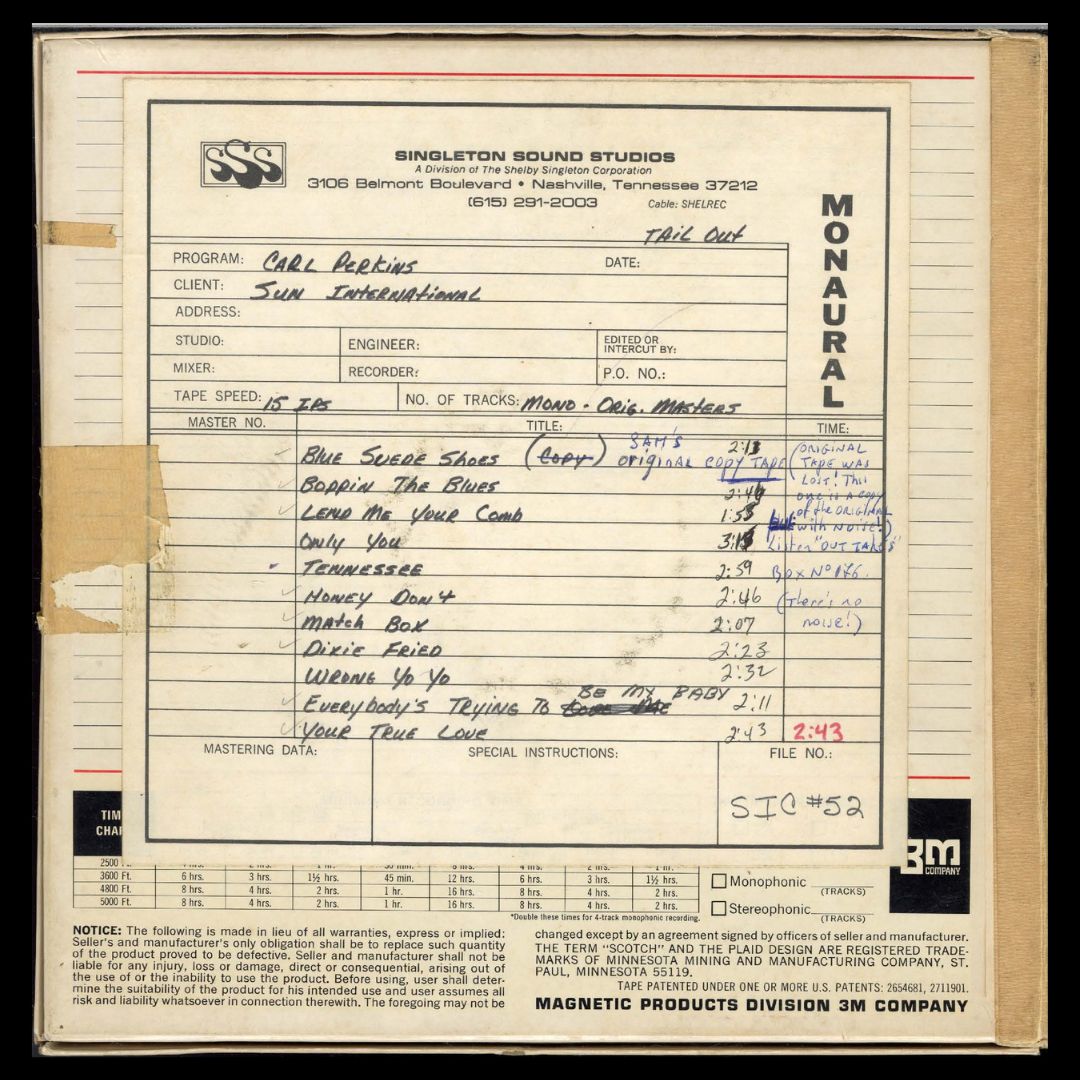 SSS
SINGLETON SOUND STUDIOS
A Division of The Shelby Singleton Corporation
3106 Belmont Boulevard • Nashville, Tennessee 37212
(615) 291-2003 Cable: SHELREC
MONAURAL
TAIL OUT
PROGRAM: CARL PERKINS DATE:
CLIENT: SUN INTERNATIONAL
ADDRESS:
STUDIO: ENGINEER: EDITED OR INTERCUT BY:
MIXER: RECORDER: P.O. NO.:
TAPE SPEED: 15 IPS NO. OF TRACKS: MONO - ORIG. MASTERS
MASTER NO. TITLE: TIME:
BLUE SUEDE SHOES (COPY) SAM'S original COPY TAPE 2:13
(ORIGINAL
TAPE WAS
LOST! This
one is a copy
of the ORIGINAL
with NOISE!)
Listen "OUT TAKES"
BOX Nº 176.
(There's no
noise!)
BOPPIN THE BLUES
LEND ME YOUR COMB
ONLY YOU
TENNESSEE 2:59
HONEY DON'T 2:46
MATCH BOX 2:07
DIXIE FRIED 2:23
WRONG YO YO 2:32
EVERYBODY'S TRYING TO BE MY BABY 2:11
YOUR TRUE LOVE 2:43 2:43
MASTERING DATA: SPECIAL INSTRUCTIONS: FILE NO.:
SIC #52
TIM
CHAR
2500
3600 Ft. 6 hrs. 3 hrs. 1½ hrs. 45 min. 12 hrs. 6 hrs. 3 hrs. 1½ hrs.
4800 Ft. 8 hrs. 4 hrs. 2 hrs. 1 hr. 16 hrs. 8 hrs. 4 hrs. 2 hrs.
5000 Ft. 8 hrs. 4 hrs. 2 hrs. 1 hr. 16 hrs. 8 hrs. 4 hrs. 2 hrs.
*Double these times for 4-track monophonic recording.
Monophonic (TRACKS)
Stereophonic (TRACKS)
3M
COMPANY
NOTICE: The following is made in lieu of all warranties, express or implied:
Seller's and manufacturer's only obligation shall be to replace such quantity
of the product proved to be defective. Seller and manufacturer shall not be
liable for any injury, loss or damage, direct or consequential, arising out of
the use of or the inability to use the product. Before using, user shall deter-
mine the suitability of the product for his intended use and user assumes all
risk and liability whatsoever in connection therewith. The foregoing may not be
changed except by an agreement signed by officers of seller and manufacturer.
THE TERM “SCOTCH” AND THE PLAID DESIGN ARE REGISTERED TRADE-
MARKS OF MINNESOTA MINING AND MANUFACTURING COMPANY, ST.
PAUL, MINNESOTA 55119.
TAPE PATENTED UNDER ONE OR MORE U.S. PATENTS: 2654681, 2711901.
MAGNETIC PRODUCTS DIVISION 3M COMPANY